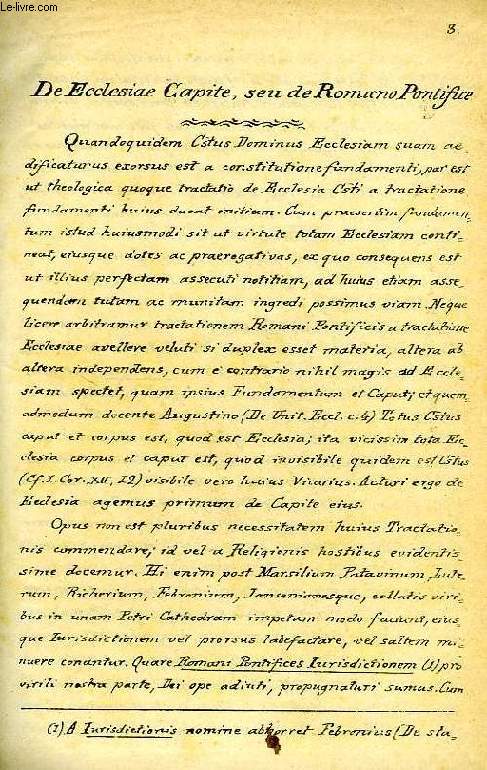 Le-Livre.com
3
De Ecclesiae Capite, seu de Romano Pontifice
Quandoquidem Cstus Dominus Ecclesiam suam ae-
dificaturus exorsus est a constitutione fundamenti, par est
ut theologica quoque tractatio de Ecclesia Csti a tractatione
fundamenti huius ducat initium. Cum praesertim fundamen-
tum istud huiusmodi sit ut virtute totam Ecclesiam conti-
neat, eiusque dotes ac praerogativas, ex quo consequens est
ut illius perfectam assecuti notitiam, ad huius etiam asse-
quendam tutam ac munitam ingredi possimus viam. Neque
licere arbitramur tractationem Romani Pontificis a tractatione
Ecclesiae avellere veluti si duplex esset materia, altera ab
altera independens, cum e contrario nihil magis ad Eccle-
siam spectet, quam ipsius Fundamentum et Caput; et quem-
admodum docente Augustino (De Unit. Eccl. c. 4) Totus Cstus
caput et corpus est, quod est Ecclesia; ita vicissim tota Ec-
clesia corpus et caput est, quod invisibile quidem est Cstus
(Cf. I. Cor. XII, 12) visibile vero huius Vicarius. Acturi ergo de
Ecclesia agemus primum de Capite eius.
Opus non est pluribus necessitatem huius Tractatio-
nis commendare; id vel a Religionis hostibus evidentis-
sime docemur. Hi enim post Marsilium Patavinum, Lute-
rum, Richerium, Febronium, Jansenianosque, collatis viri-
bus in unam Petri Cathedram impetum modo faciunt, eius-
que Iurisdictionem vel prorsus labefactare, vel saltem mi-
nuere conantur. Quare Romani Pontifices Iurisdictionem (1) pro
virili nostra parte, Dei ope adiuti, propugnaturi sumus. Cum
(1) A Iurisdictionis nomine abhorret Febronius (De sta-